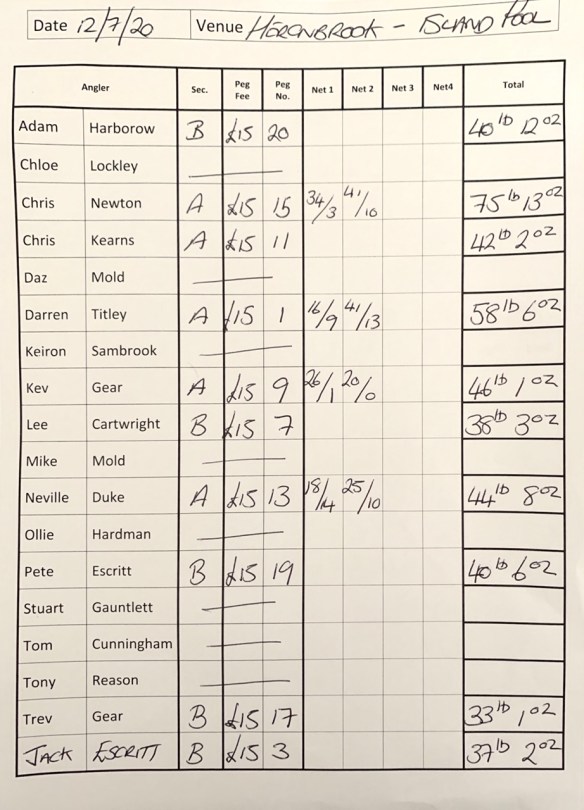 Date 12/7/20 Venue HERONBROOK - ISLAND POOL
Angler Sec. Peg Fee Peg No. Net 1 Net 2 Net 3 Net4 Total
Adam Harborow B £15 20 40 lb 12 oz
Chloe Lockley
Chris Newton A £15 15 34/3 41/10 75 lb 13 oz
Chris Kearns A £15 11 42 lb 2 oz
Daz Mold
Darren Titley A £15 1 16/9 41/13 58 lb 6 oz
Keiron Sambrook
Kev Gear A £15 9 26/1 20/0 46 lb 1 oz
Lee Cartwright B £15 7 38 lb 3 oz
Mike Mold
Neville Duke A £15 13 18/14 25/10 44 lb 8 oz
Ollie Hardman
Pete Escritt B £15 19 40 lb 6 oz
Stuart Gauntlett
Tom Cunningham
Tony Reason
Trev Gear B £15 17 33 lb 1 oz
JACK ESCRITT B £15 3 37 lb 2 oz